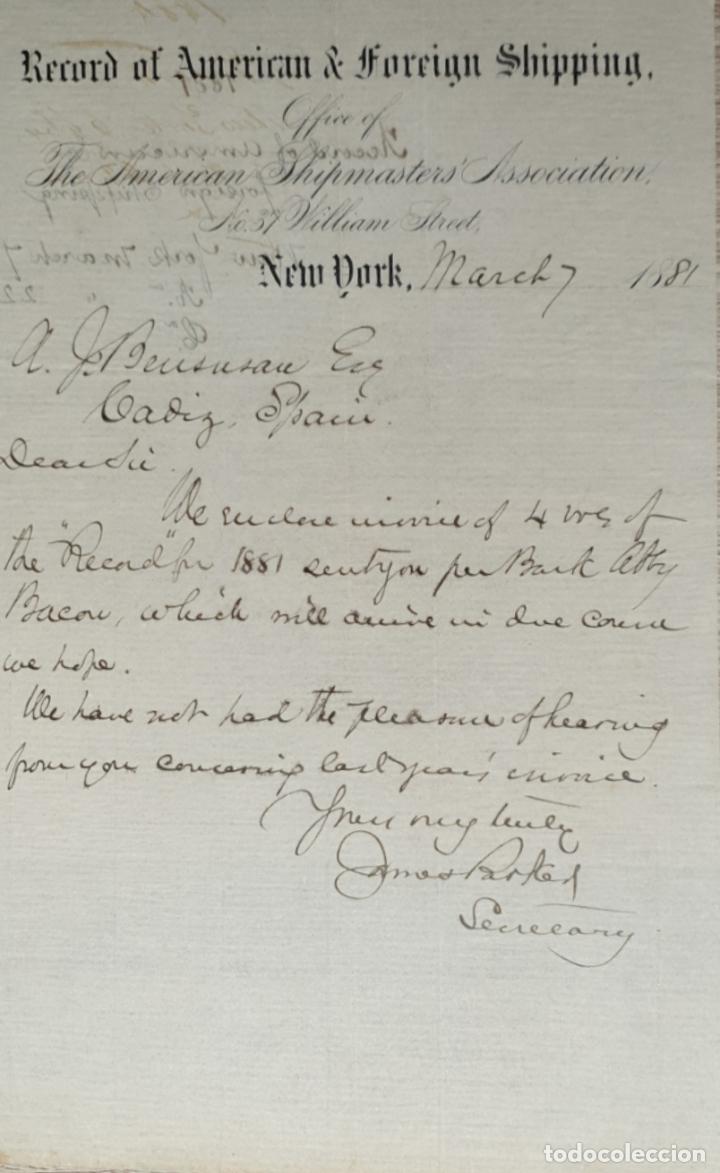 Record of American & Foreign Shipping.
Office of
The American Shipmasters' Association,
No. 37 William Street,
New York, March 7 1881
A. J. Bensusan Esq
Cadiz, Spain.
Dear Sir.
We enclose invoice of 4 vols of
the "Record" for 1881 sent you per Bark Abby
Bacon, which will arrive in due course
we hope.
We have not had the pleasure of hearing
from you concerning last year's invoice.
Yours very truly
James Parker
Secretary
todocoleccion